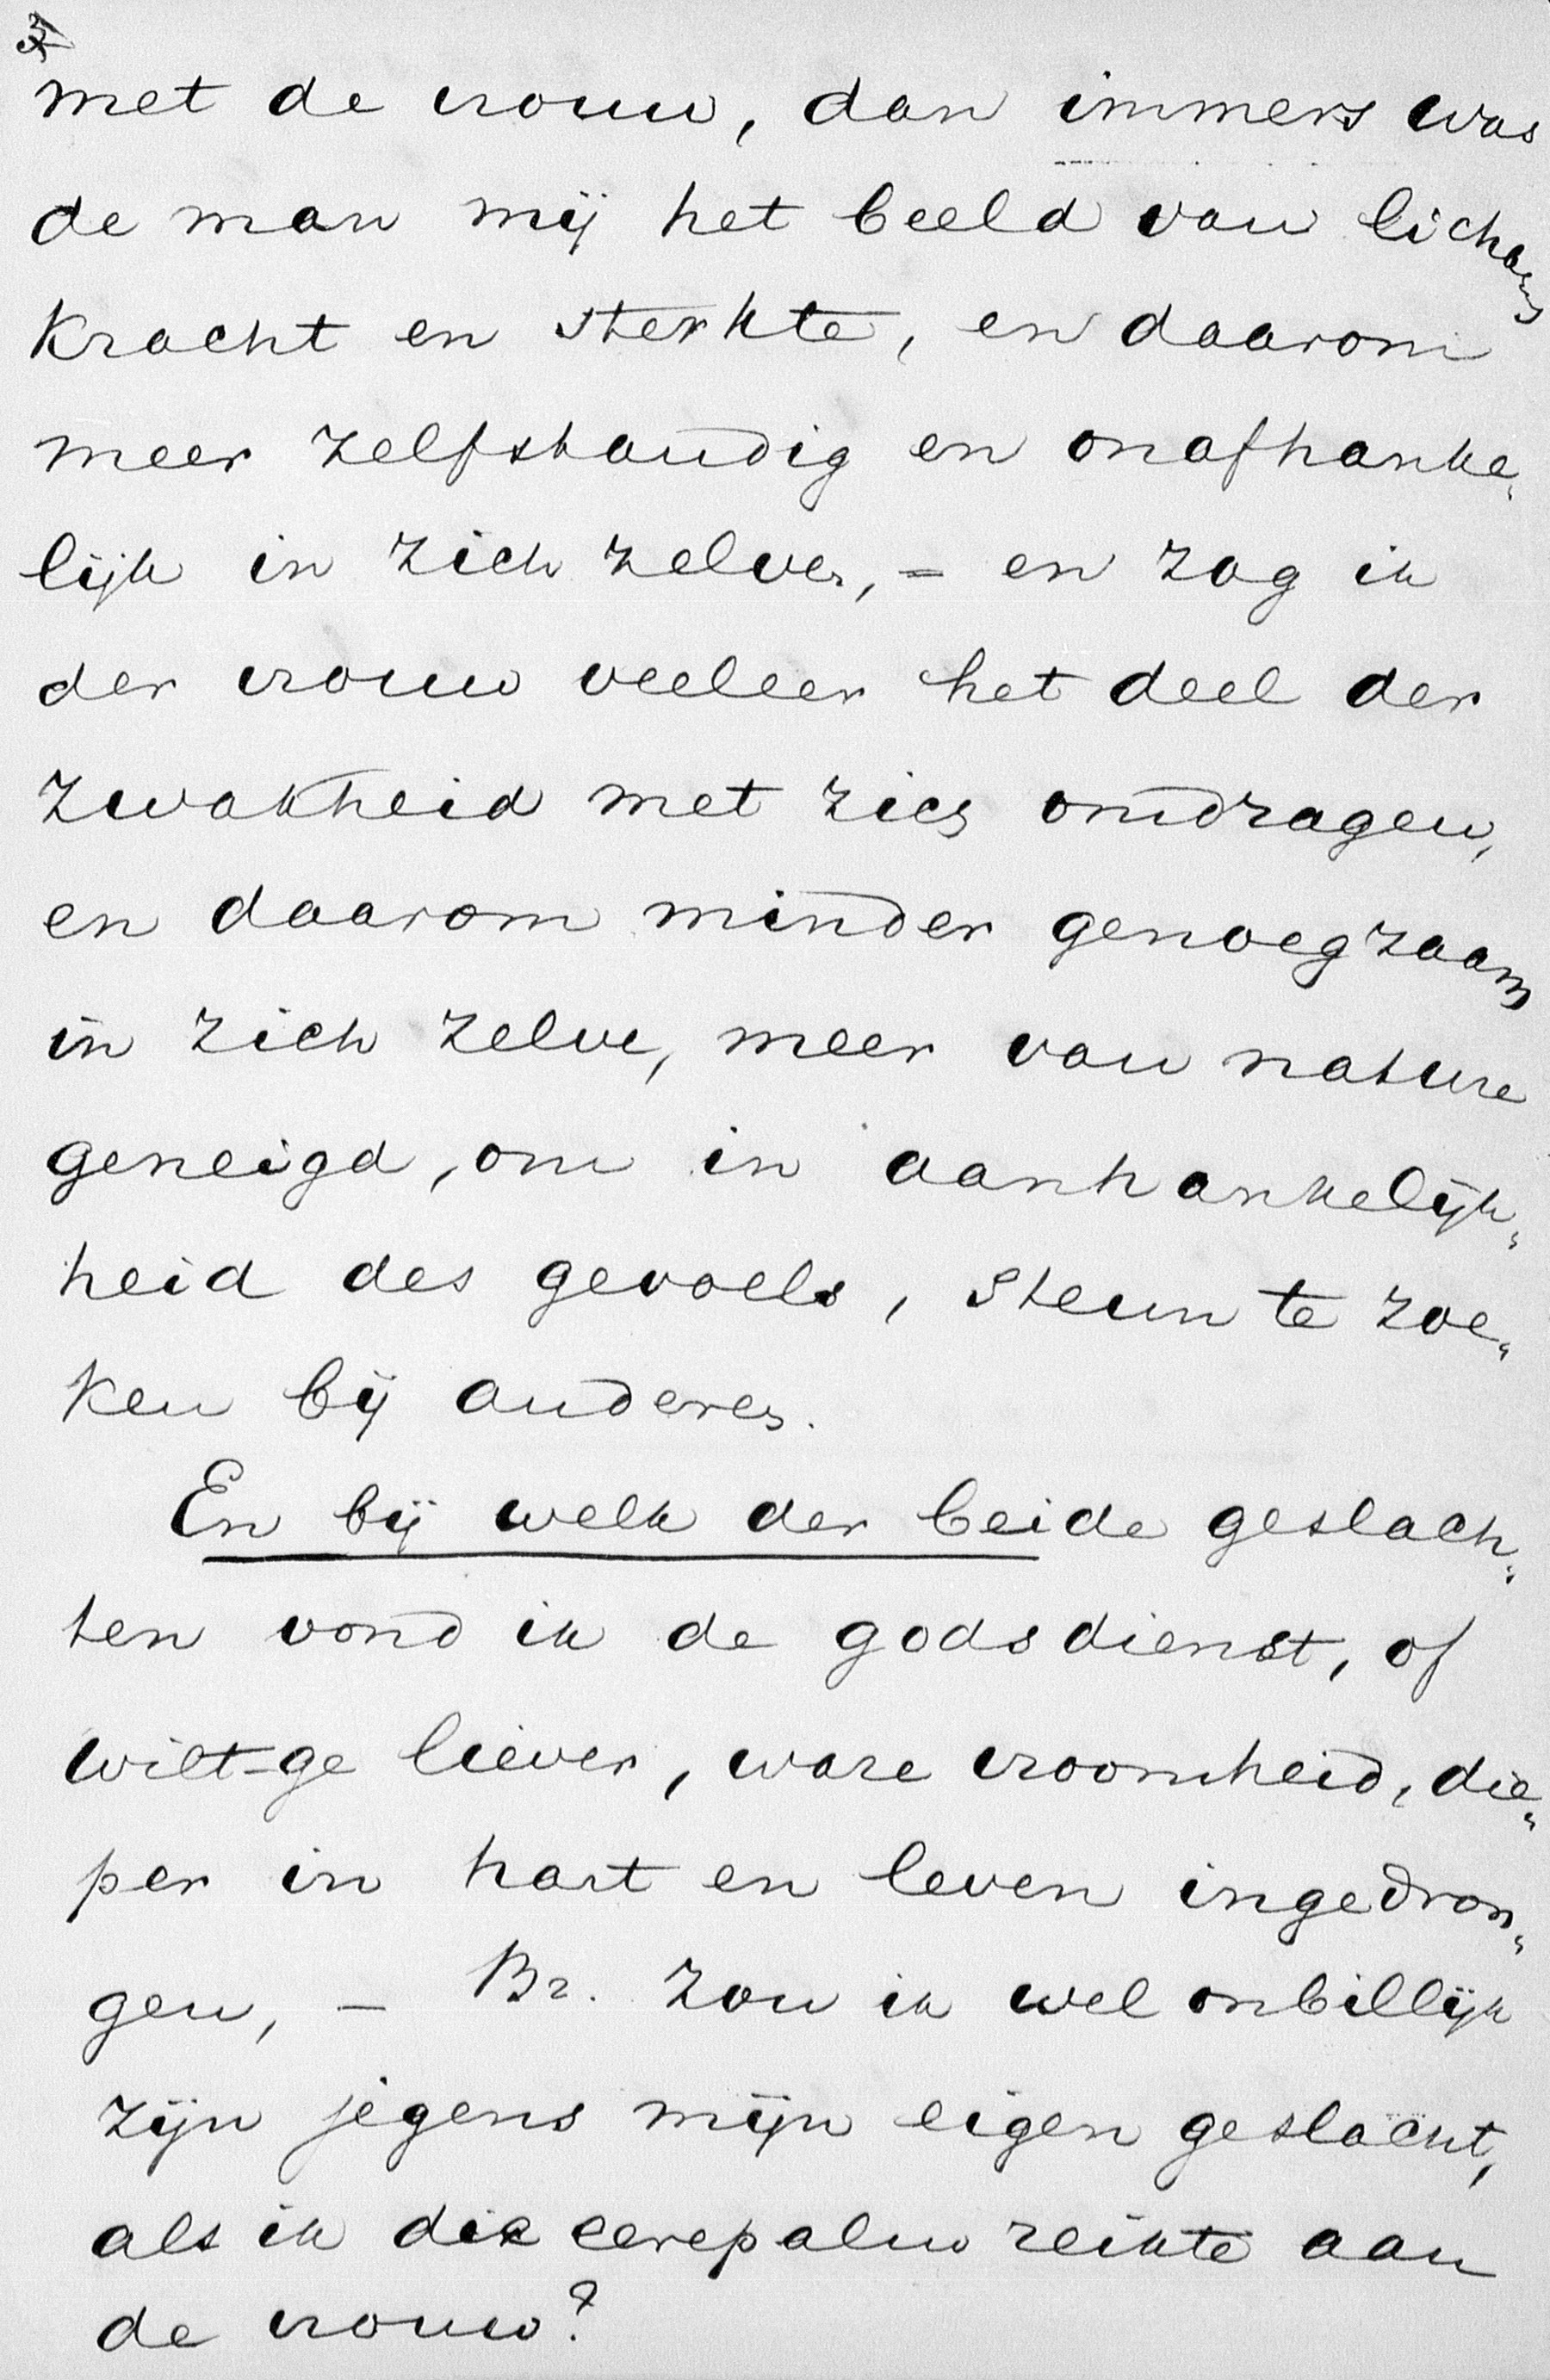 met de vrouw, dan immers was
de man mij het beeld van lichaams
kracht en sterkte, en daarom
meer zelfstandig en onafhanke„
lijk in zich zelven, – en zag ik
der vrouw veeleer het deel der
zwakheid met zich omdragen,
en daarom minder genoegzaam
in zich zelve, meer van nature
geneigd, om in aanhankelijk„
heid des gevoels, steun te zoe„
ken bij anderen.
En bij welk der beide geslach„
ten vond ik de godsdienst, of
wilt-ge liever, ware vroomheid, die„
per in hart en leven ingedron„
gen, – Br. zou ik wel onbillijk
zijn jegens mijn eigen geslacht,
als ik die eerepalm reikte aan
de vrouw?